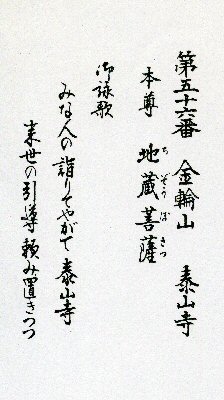 第五十六番 金輪山 泰山寺
本尊 地蔵菩薩
ぢぞうぼさつ
御詠歌
みな人の詣りてやがて泰山寺
来世の引導頼み置きつつ